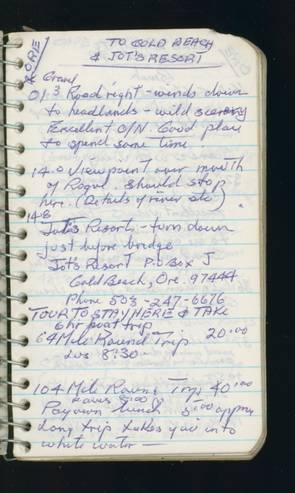 ORE
TO GOLD BEACH
& JOT'S RESORT
Gravel
01.3 Road right - winds down
to headlands - wild scenery
Excellent O/N. Good place
to spend some time!
14.0 Viewpoint over mouth
of Rogue. Should stop
here. (Details of river etc)
14.8
Jot's Resort - turn down
just before bridge
Jot's Resort P.O Box J
Gold Beach, Ore. 97444
Phone 503-247-6676
TOUR TO STAY HERE & TAKE
6 hr boat trip
64 Mile Round Trip 20.00
Lvs 8:30
104 Mile Round Trip 40.00
Leaves 8:00
Pay own lunch 5.00 approx
Long trip takes you into
white water -